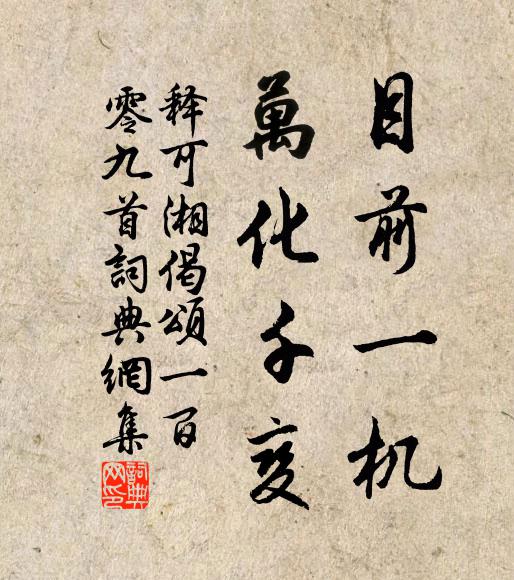 目前一机
萬化千变
释可湘偈頌一百
零九首詞典網集
詞典网印